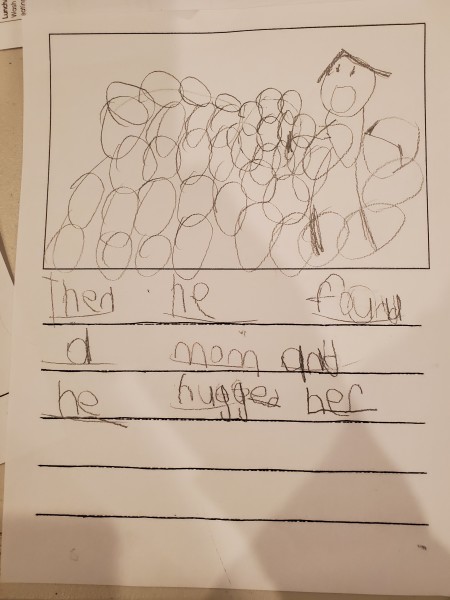 Then he found
a mom and
he hugged her